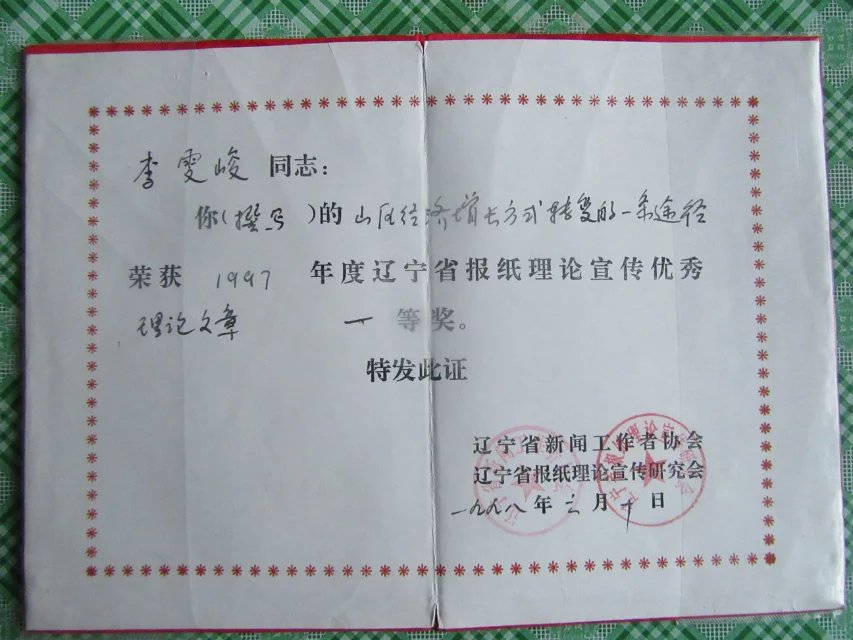 李雯峻 同志：
你（撰写）的 山区经济增长方式转变的一条途径
荣获 1997 年度辽宁省报纸理论宣传优秀
理论文章 一 等奖。
特发此证
辽宁省新闻工作者协会
辽宁省报纸理论宣传研究会
一九九八年三月十日